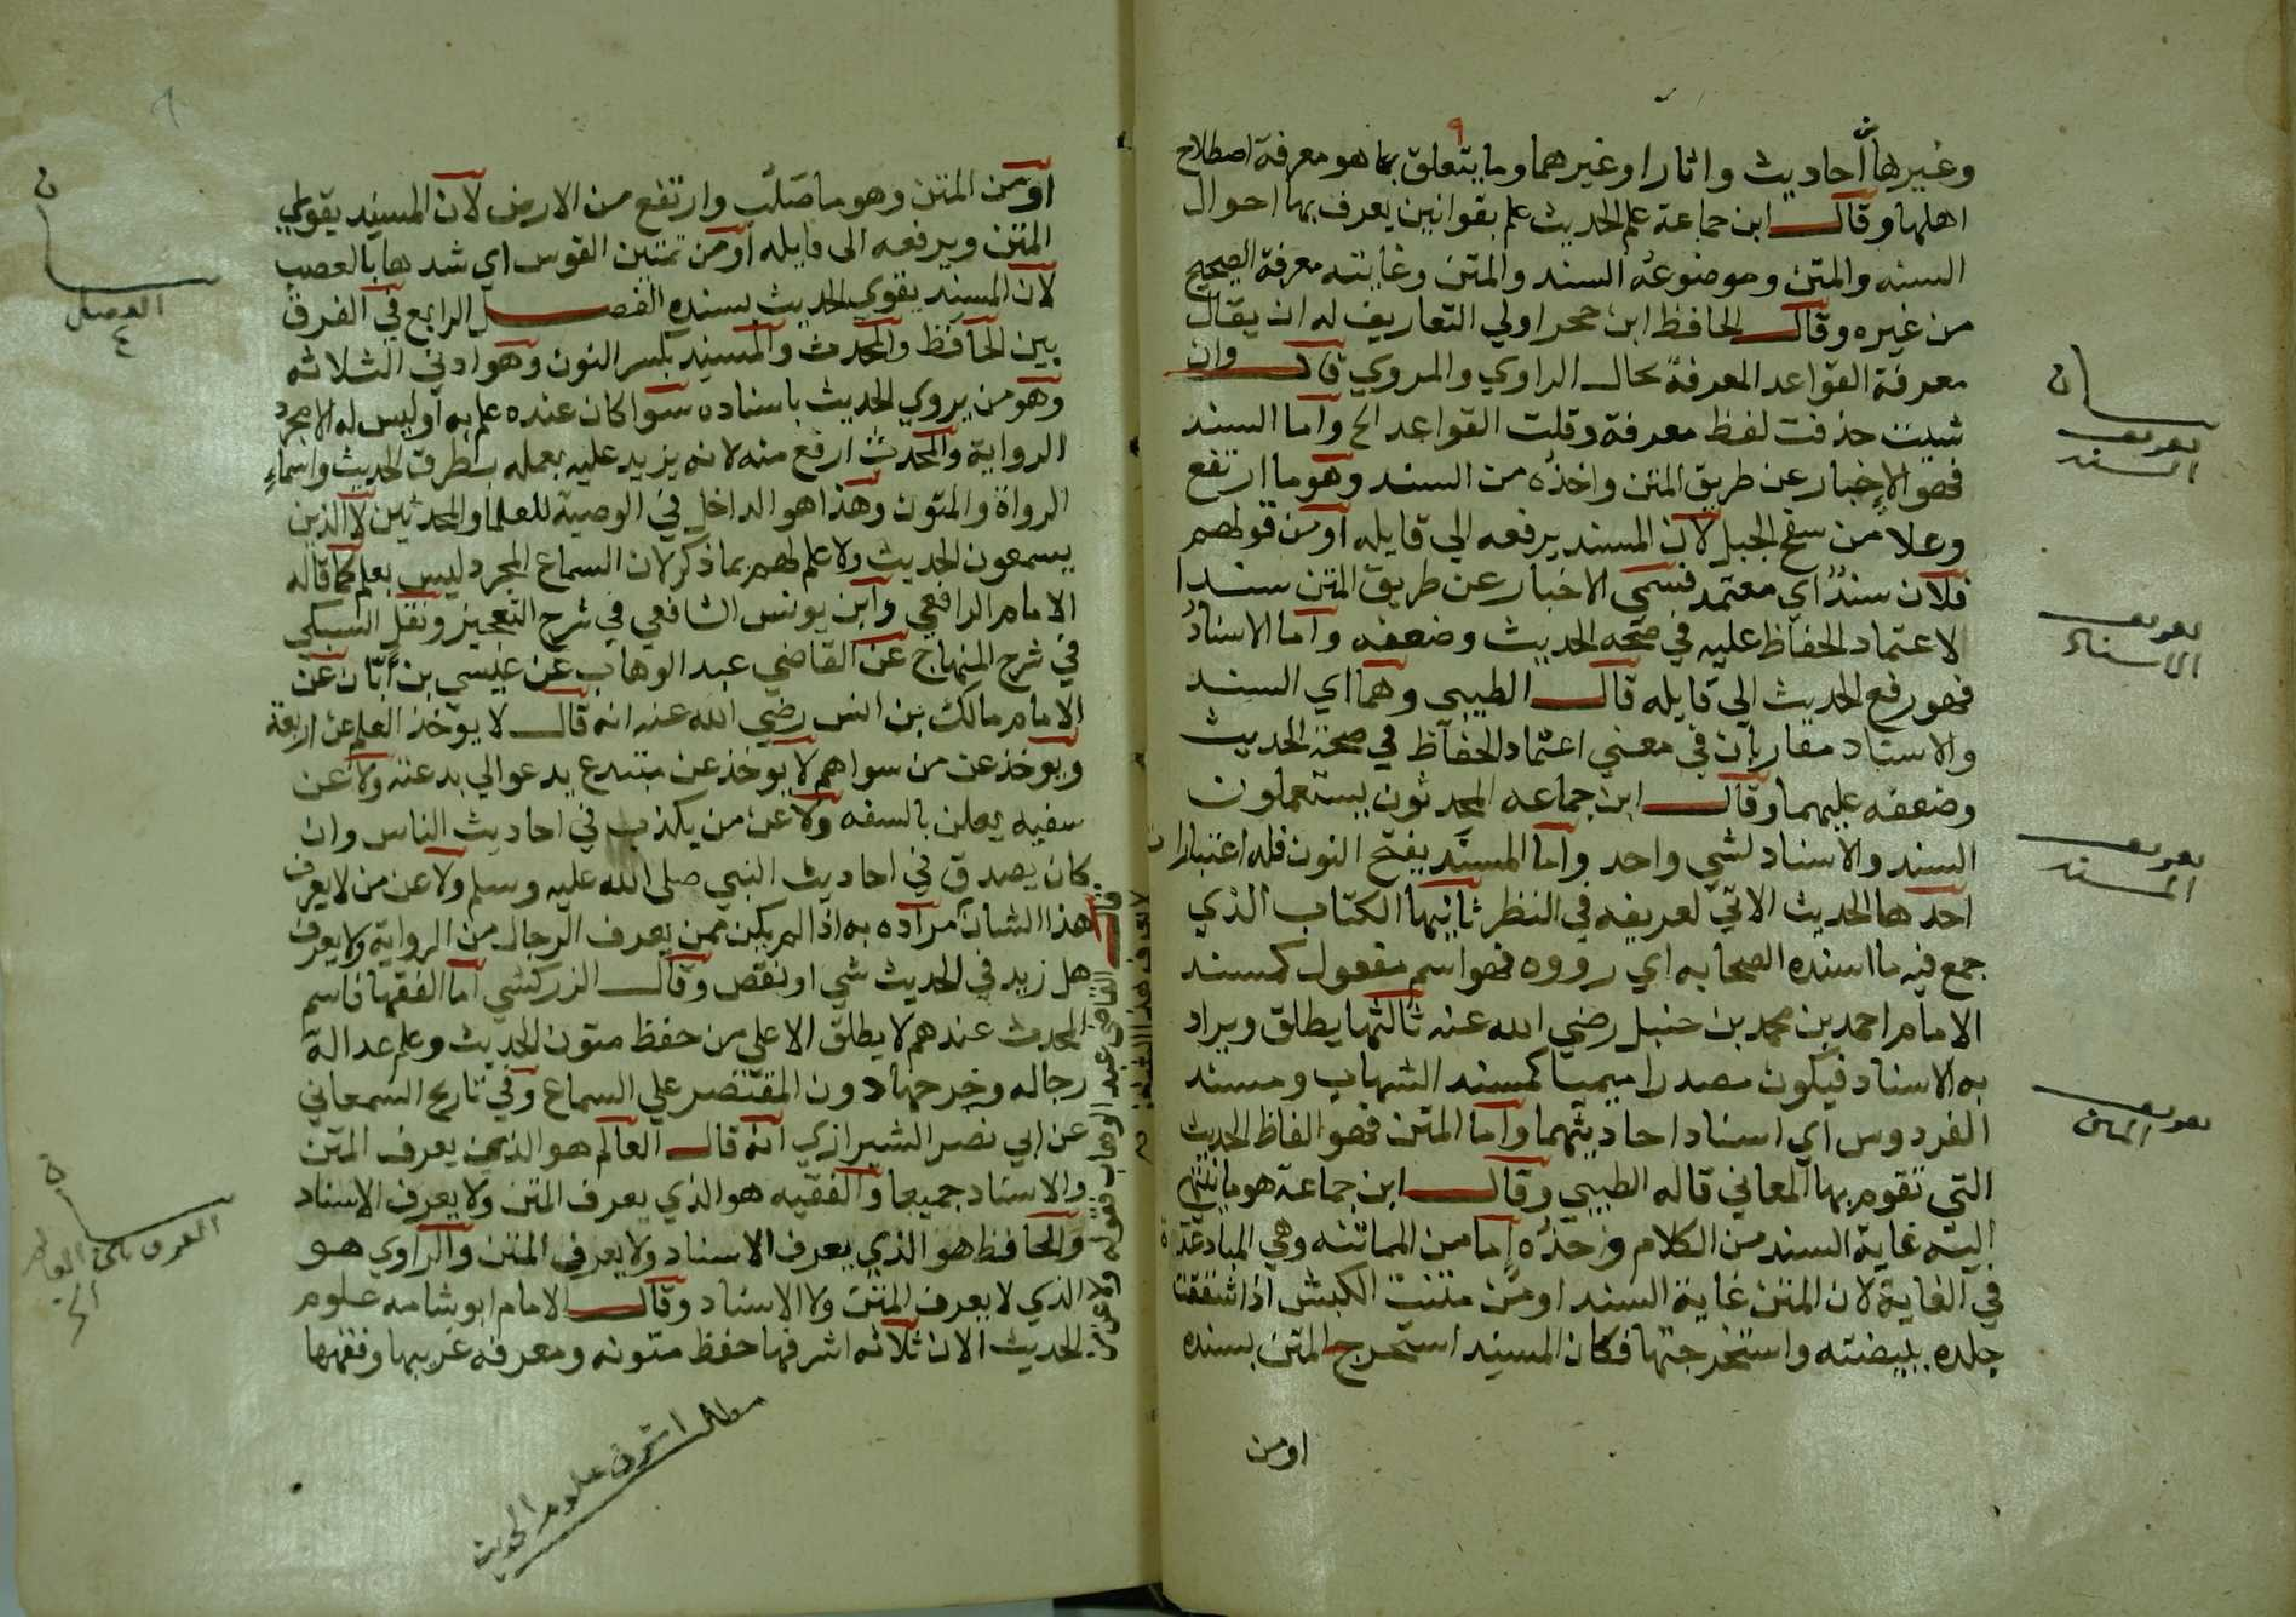 وغيرها احاديث واثارا وغيرهما وما يتعلق بما هو معرفة اصطلاح
اهلها وقال ابن جماعة علم الحديث علم بقوانين يعرف بها احوال
السند والمتن وموضوعه السند والمتن وغايته معرفة الصحيح
من غيره وقال الحافظ ابن حجر اولي التعاريف له ان يقال
معرفة القواعد المعرفة بحال الراوي والمروي قال وان
شيت حذفت لفظ معرفة وقلت القواعد الخ واما السند
فهو الاخبار عن طريق المتن واخذه من السند وهو ما ارتفع
وعلا من سفح الجبل لان المسند يرفعه الي قايله او من قولهم
فلان سند اي معتمد فسمي الاخبار عن طريق المتن سندا
لاعتماد الحفاظ عليه في صحة الحديث وضعفه واما الاسناد
فهو رفع الحديث الي قايله قال الطيبي وهما اي السند
والاسناد متقاربان في معني اعتماد الحفاظ في صحة الحديث
وضعفه عليهما وقال ابن جماعه المحدثون يستعملون
السند والاسناد لشي واحد واما المسند بفتح النون فله اعتبارات
احدها الحديث الاتي تعريفه في النظر ثانيها الكتاب الذي
جمع فيه ما اسنده الصحابه اي رووه فهو اسم مفعول كمسند
الامام احمد بن محمد بن حنبل رضي الله عنه ثالثها يطلق ويراد
به الاسناد فيكون مصدرا ميميا كمسند الشهاب ومسند
الفردوس اي اسناد احاديثهما واما المتن فهو الفاظ الحديث
التي تقوم بها المعاني قاله الطيبي وقال ابن جماعة هو ما ينتهي
اليه غاية السند من الكلام واخذه اما من المماتنه وهي المباعدة
في الغاية لان المتن غاية السند او من متنت الكبش اذا شققت
جلدة بيضته واستخرجتها فكان المسند استخرج المتن بسنده
او من
تعريف
السند
تعريف
الاسناد
تعريف
المسند
تعريف
المتن
او من المتن وهو ما صلب وارتفع من الارض لان المسند يقوي
المتن ويرفعه الى قايله او من تمتين القوس اي شدها بالعصب
لان المسند يقوي الحديث بسنده الفصل الرابع في الفرق
بين الحافظ والمحدث والمسند بكسر النون وهو ادني الثلاثه
وهو من يروي الحديث باسناده سوا كان عنده علم به او ليس له الا مجرد
الرواية والمحدث ارفع منه لانه يزيد عليه بعمله بطرق الحديث واسماء
الرواة والمتون وهذا هو الداخل في الوصية للعلما والمحدثين لا الذين
يسمعون الحديث ولا علم لهم بما ذكر لان السماع المجرد ليس بعلم كما قاله
الامام الرافعي وابن يونس الشافعي في شرح التعجيز ونقل السبكي
في شرح المنهاج عن القاضي عبد الوهاب عن عيسي بن ابان عن
الامام مالك بن انس رضي الله عنه انه قال لا يوخذ العلم عن اربعة
ويوخذ عن من سواهم لا يوخذ عن مبتدع يدعوا لي بدعته ولا عن
سفيه يعلن بالسفه ولا عن من يكذب في احاديث الناس وان
كان يصدق في احاديث النبي صلى الله عليه وسلم ولا عن من لا يعرف
هذا الشان مراده به اذا لم يكن ممن يعرف الرجال من الرواية ولا يعرف
هل زيد في الحديث شي او نقص وقال الزركشي اما الفقها فاسم
المحدث عندهم لا يطلق الا علي من حفظ متون الحديث وعلم عدالة
رجاله وجرحها دون المقتصر علي السماع وفي تاريخ السمعاني
عن ابي نصر الشيرازي انه قال العالم هو الذي يعرف المتن
والاسناد جميعا والفقيه هو الذي يعرف المتن ولا يعرف الاسناد
والحافظ هو الذي يعرف الاسناد ولا يعرف المتن والراوي هو
الذي لا يعرف المتن ولا الاسناد وقال الامام ابو شامه علوم
الحديث الان ثلاثه اشرفها حفظ متونه ومعرفه غريبها وفقهها
القاضي عبد الوهاب
لا يعرف هذا الشان
الفصل
٤
الفرق بين
مطلب اشرف علوم الحديث